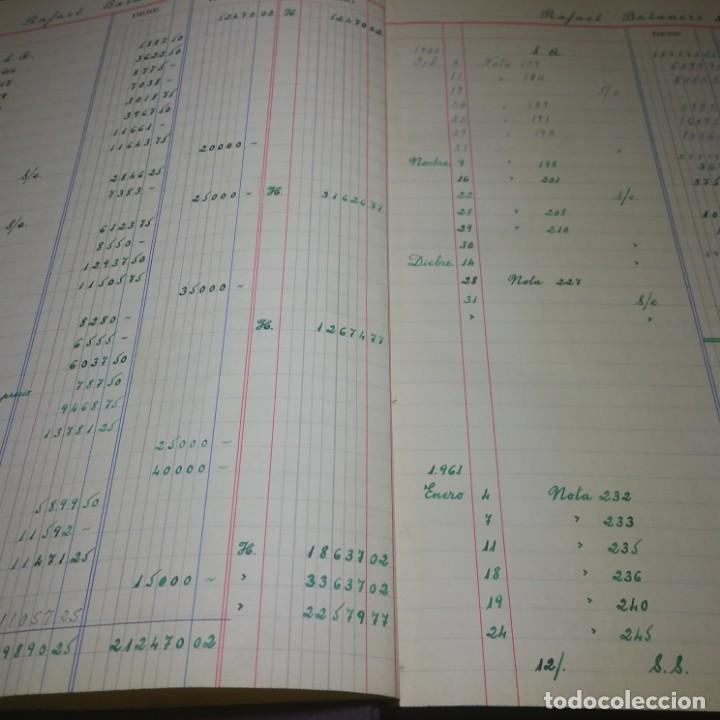 Rafael
DEBE
52470 02 H. 52470 02
5887 50
36225 0
8775 -
7038 -
30187 5
3967 50
11661 -
11643 75
20000 -
S/c 2846 25
7383 -
25000 - H. 31626 77
S/c 6123 75
8550 -
12937 50
11505 75
35000 -
8280 -
H. 12674 77
6555 -
6037 50
precio 787 50
9468 75
13781 25
25000 -
40000 -
5899 50
11592 -
11471 25
H. 18637 02
15000 - " 33637 02
11057 25 " 22579 77
9890 25 212470 02
Rafael Batanero
DEBE
S. A.
Oct. Nota 179
11 " 184
19 S/c
20 " 189
25 " 191
31
Novbre 9 " 198
16 " 201
22 S/c
25 " 208
29 " 210
30 "
Dicbre 14 "
28 Nota 227
31 S/c
" "
1.961
Enero 4 Nota 232
7 " 233
11 " 235
18 " 236
19 " 240
24 " 245
12/. S.S.
todocoleccion